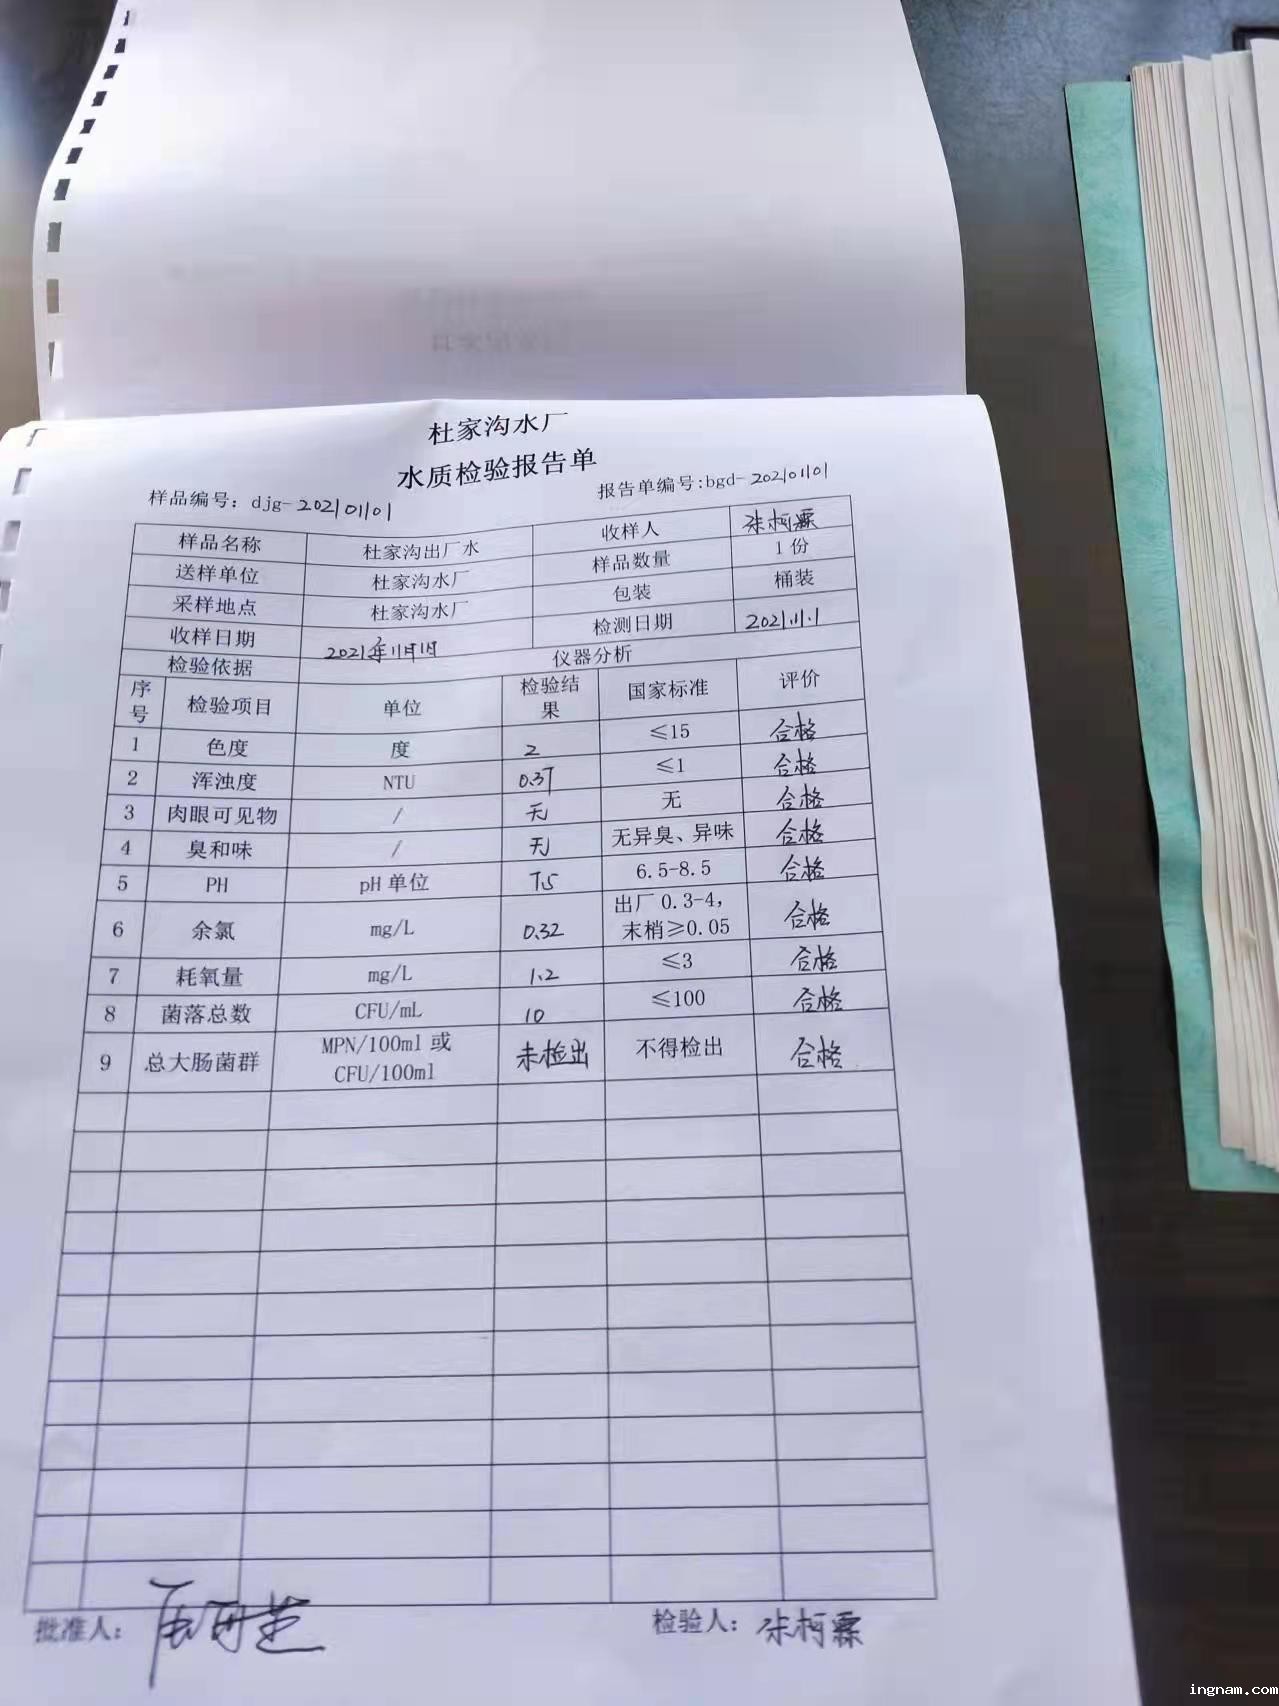 杜家沟水厂
水质检验报告单
样品编号：djg-20210101 报告单编号:bgd-20210101
样品名称 杜家沟出厂水 收样人 张柯霖
送样单位 杜家沟水厂 样品数量 1份
采样地点 杜家沟水厂 包装 桶装
收样日期 2021年11月1日 检测日期 2021.11.1
检验依据 仪器分析
序号 检验项目 单位 检验结果 国家标准 评价
1 色度 度 2 ≤15 合格
2 浑浊度 NTU 0.37 ≤1 合格
3 肉眼可见物 / 无 无 合格
4 臭和味 / 无 无异臭、异味 合格
5 PH pH单位 7.5 6.5-8.5 合格
6 余氯 mg/L 0.32 出厂0.3-4，末梢≥0.05 合格
7 耗氧量 mg/L 1.2 ≤3 合格
8 菌落总数 CFU/mL 10 ≤100 合格
9 总大肠菌群 MPN/100ml或CFU/100ml 未检出 不得检出 合格
批准人： 检验人：张柯霖
ingnam.com